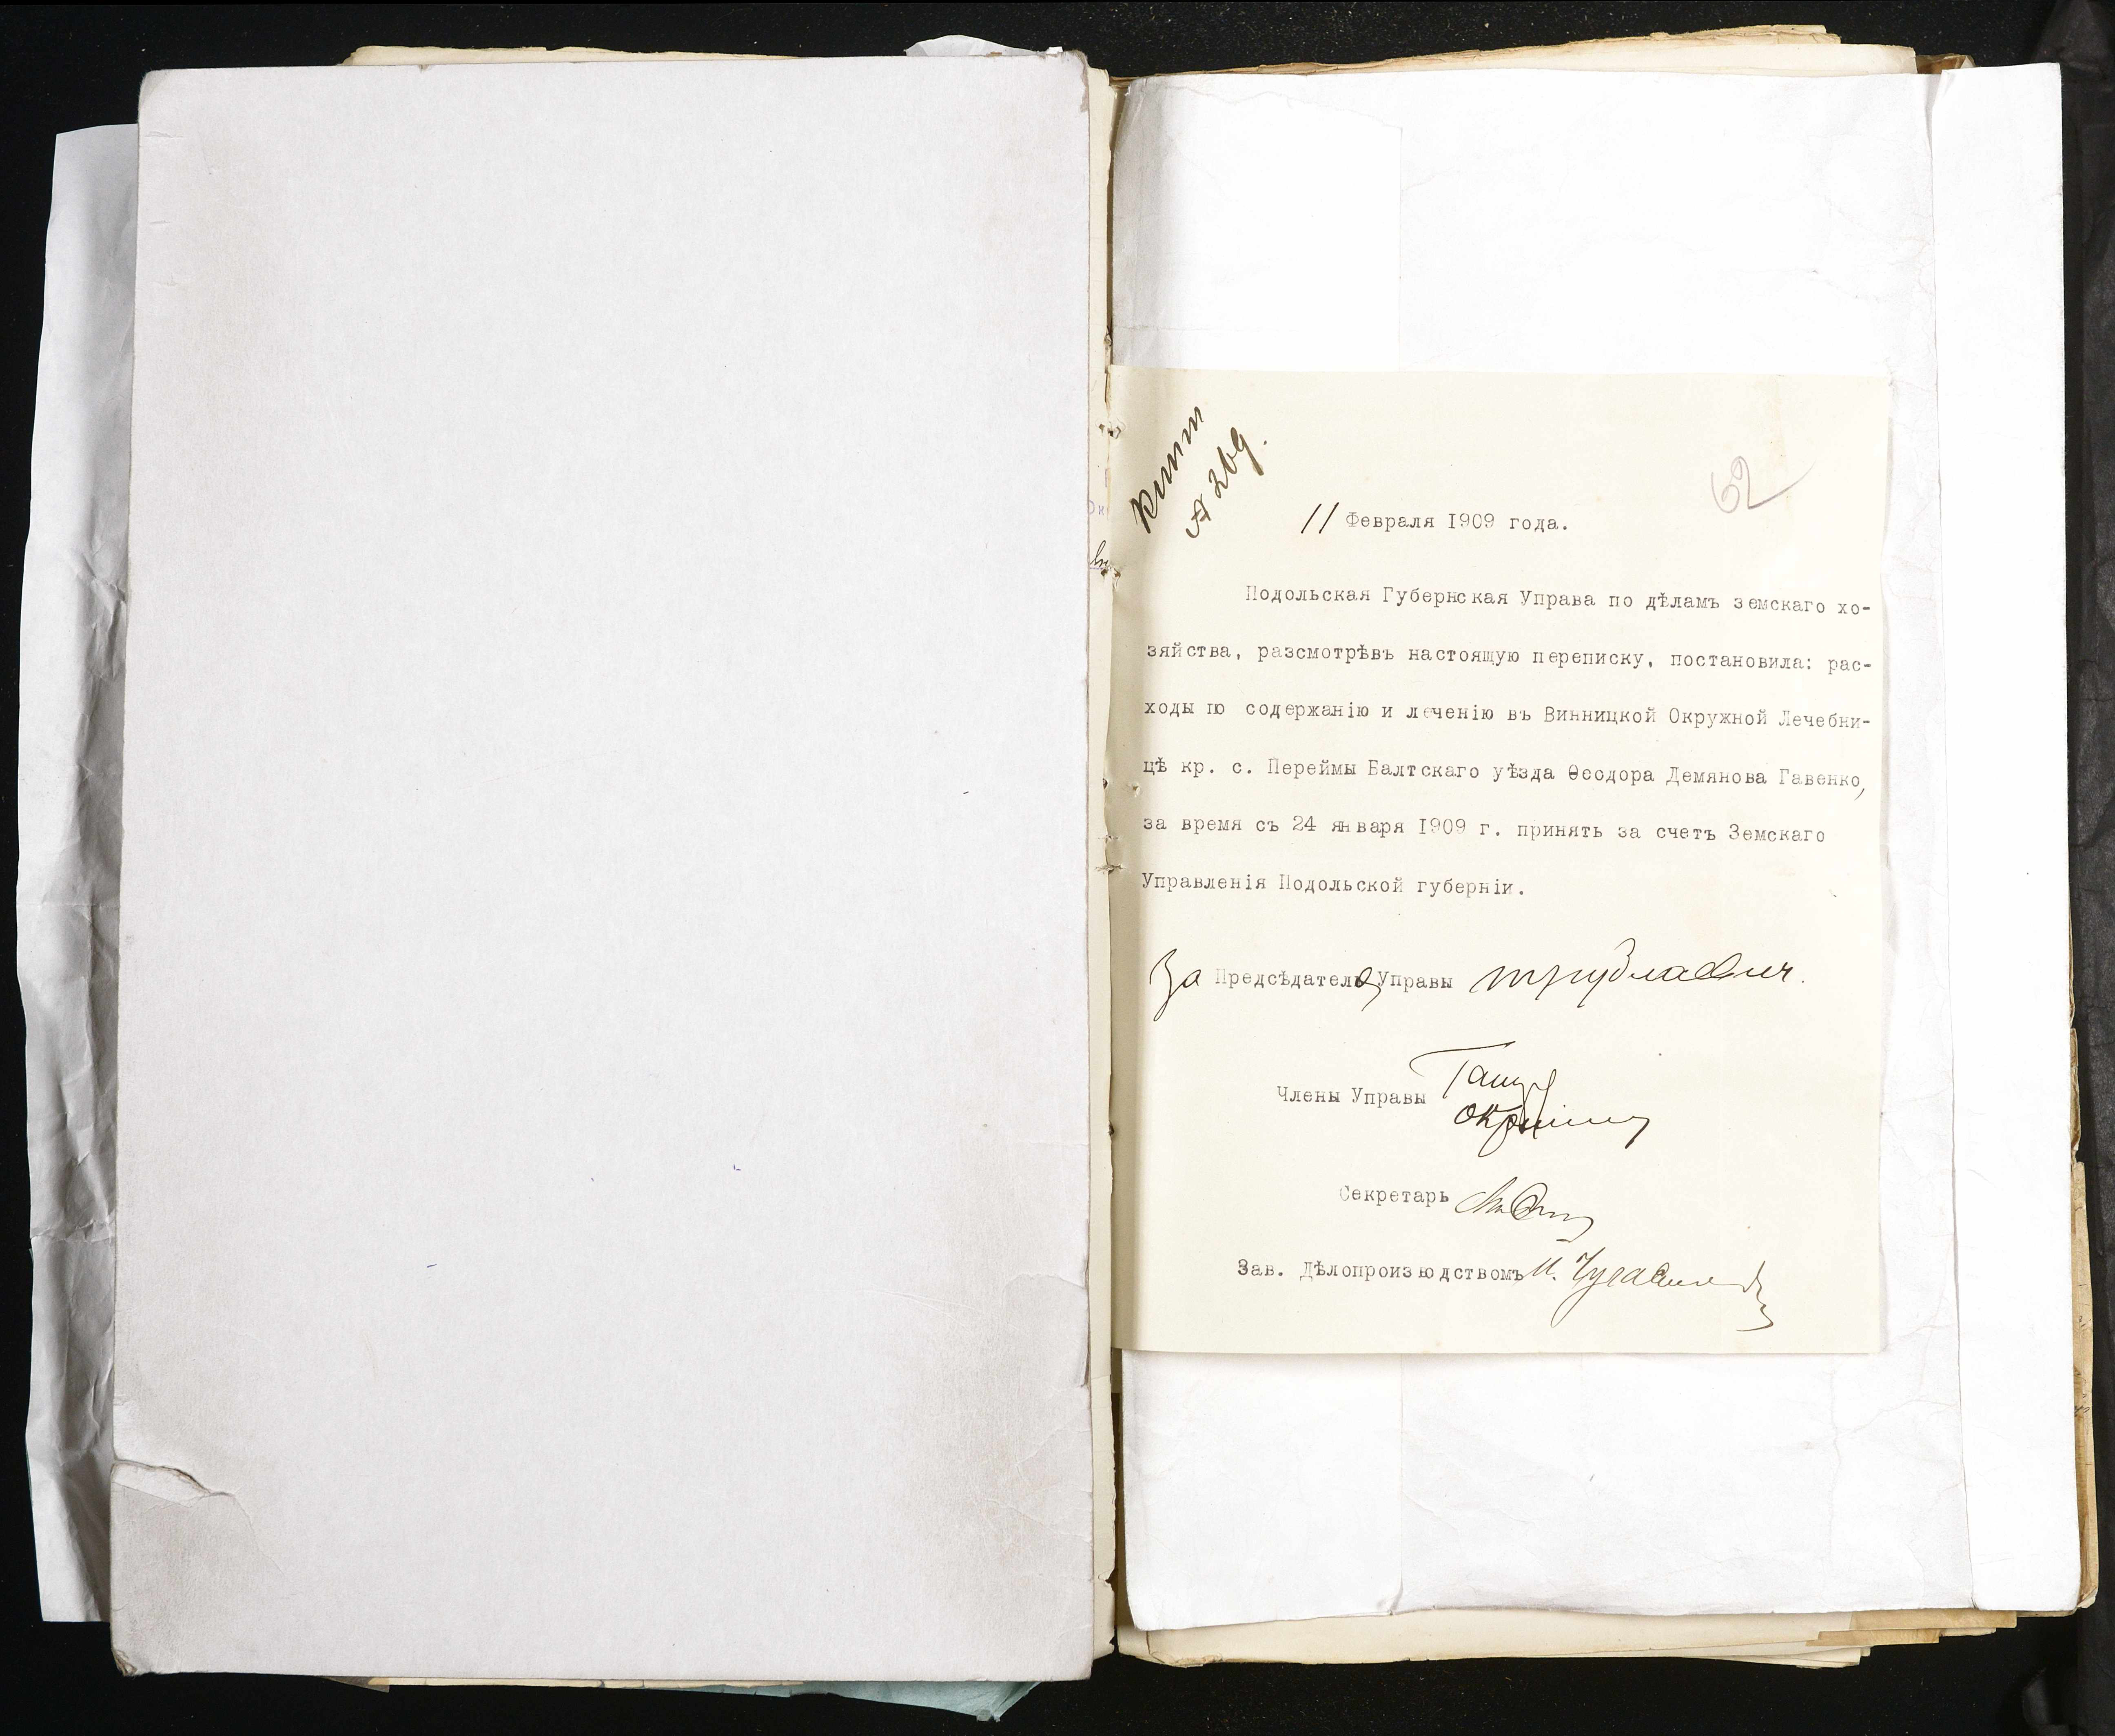 62
11 Февраля 1909 года.
Подольская Губернская Управа по дѣламъ земскаго хо-
зяйства, разсмотрѣвъ настоящую переписку, постановила: рас-
ходы по содержанію и леченію въ Винницкой Окружной Лечебни-
цѣ кр. с. Переймы Балтскаго уѣзда Ѳеодора Демянова Гавенко,
за время съ 24 января 1909 г. принять за счетъ Земскаго
Управленія Подольской губерніи.
За Предсѣдателя Управы
Члены Управы
Секретарь
Зав. Дѣлопроизводствомъ